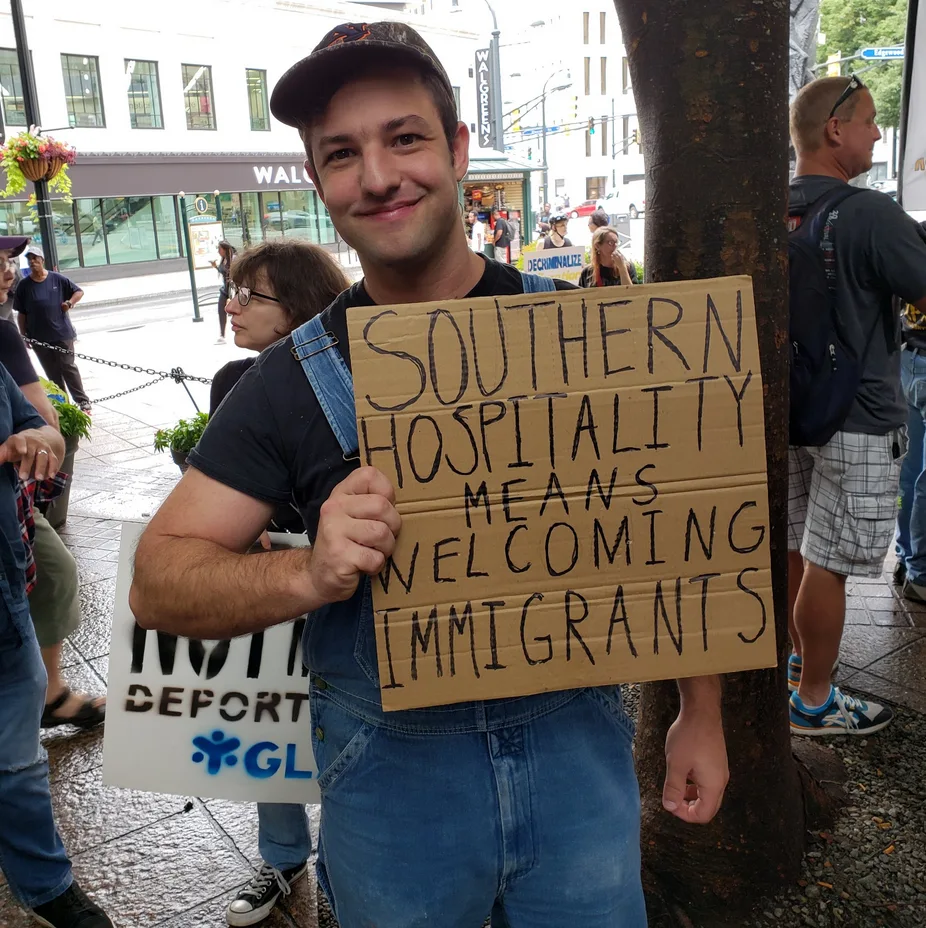 WALGREENS
Edgewood
WALG
DECRIMINALIZE
SOUTHERN
HOSPITALITY
MEANS
WELCOMING
IMMIGRANTS
DEPORT
GL